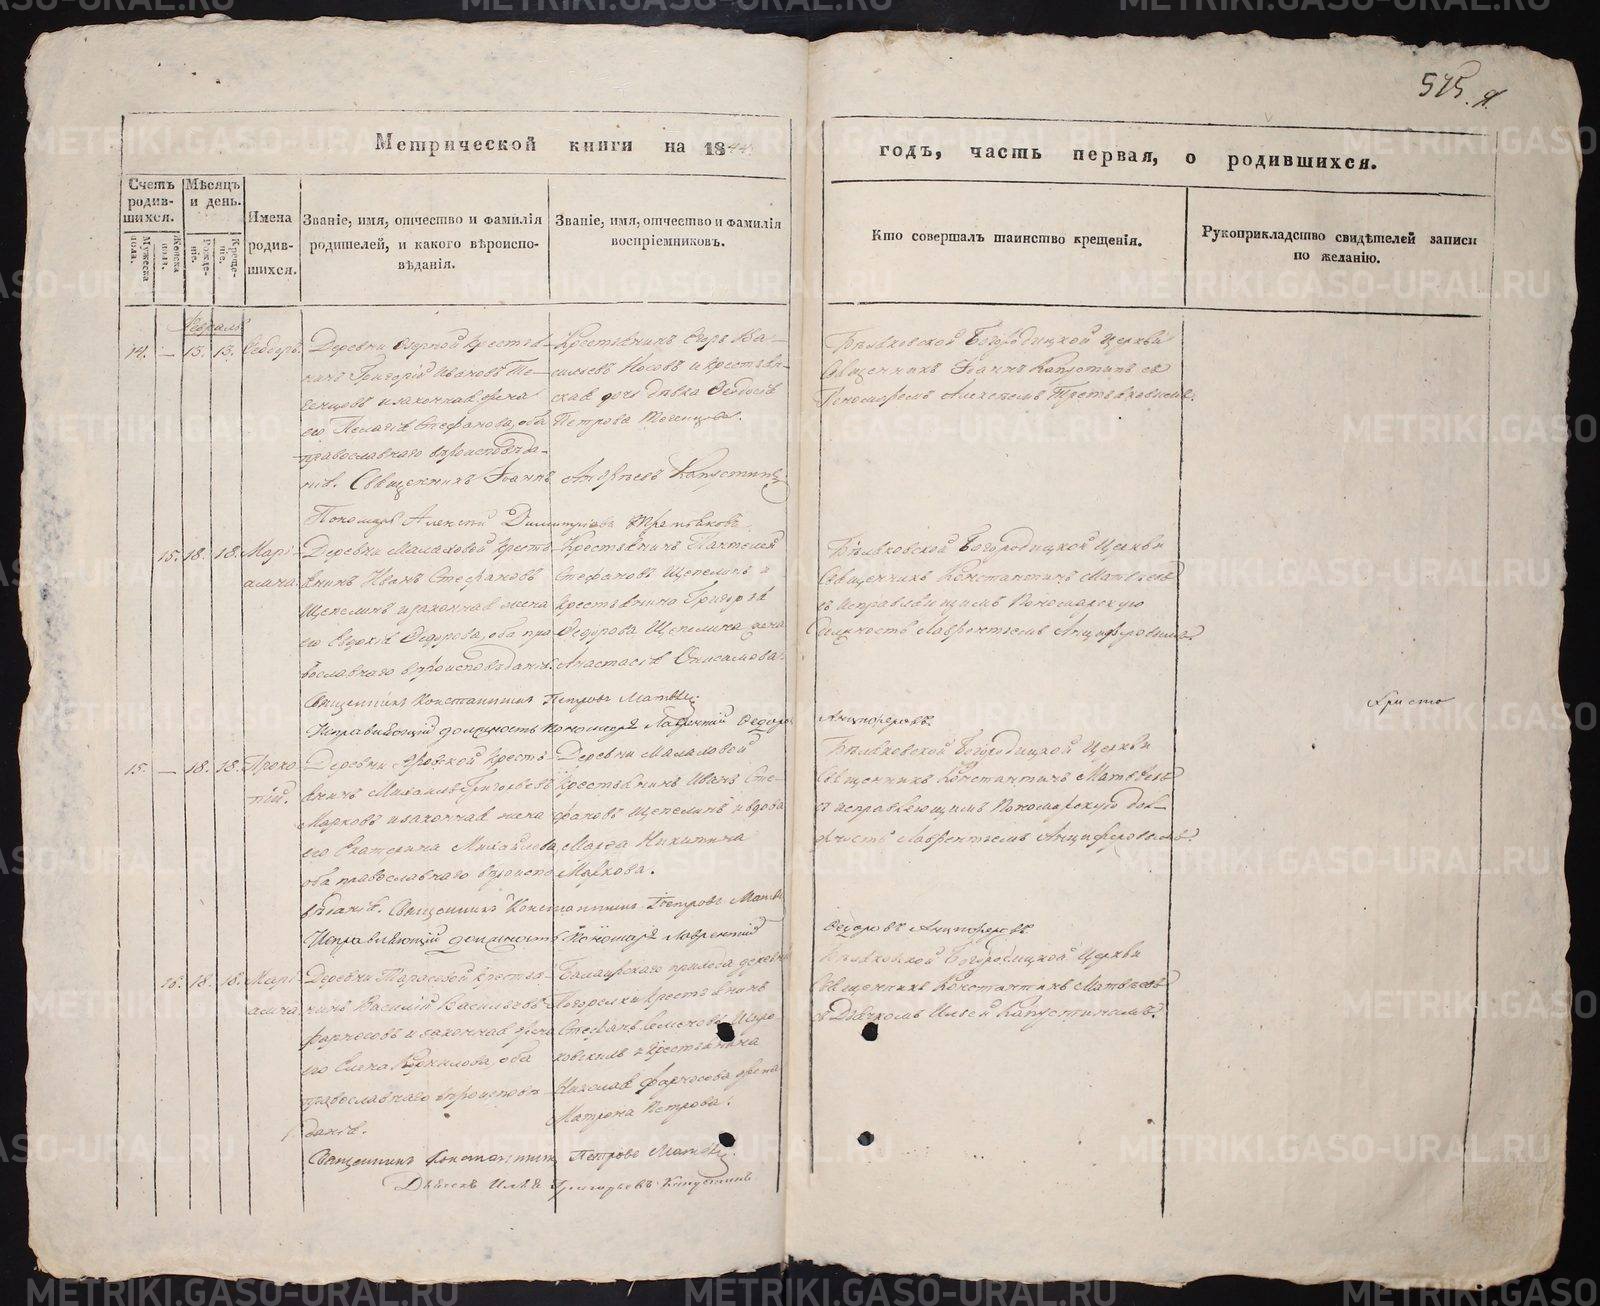 575.
Метрической книги на 1844 годъ, часть первая, о родившихся.
Счетъ родив-шихся.
Мужеска пола.
Женска пола.
Мѣсяцъ и день.
Рожде-ніе.
Креще-ніе.
Имена родив-шихся.
Званіе, имя, отчество и фамилія родителей, и какого вѣроиспо-вѣданія.
Званіе, имя, отчество и фамилія воспріемниковъ.
Кто совершалъ таинство крещенія.
Рукоприкладство свидѣтелей записи по желанію.
Февраль
14. — 13. 13. Ѳеодоръ.
Деревни Озерной крестья-
нинъ Григорій Ивановъ
и законная жена
его Пелагія Стефанова, оба
православнаго вѣроисповѣда-
нія. Священникъ Іоаннъ Андреевъ Капустинъ
Пономарь Алексій Димитріевъ Третьяковъ
Крестьянинъ Егоръ Ва-
сильевъ Носовъ и крестьян-
ская дочь дѣвка Ѳеодосія
Петрова
Бѣляковской Богородицкой Церкви
Священникъ Іоаннъ Капустинъ съ
Пономаремъ Алексѣемъ Третьяковымъ.
15. 18. 18. Марі-
амна.
Деревни Малаховой кресть-
янинъ Иванъ Стефановъ
Щепелинъ и законная жена
его Евдокія Ѳедорова, оба пра-
вославнаго вѣроисповѣданія.
Священникъ Константинъ Петровъ Матвѣевъ
Исправляющій должность Пономаря Лаврентій Ѳедоровъ
Анциферовъ.
Крестьянинъ Пантелей
Стефановъ Щепелинъ и
крестьянина Григорья
Ѳедорова Щепелина дочь
Анастасія
Бѣляковской Богородицкой Церкви
Священникъ Константинъ Матвѣевъ
съ исправляющимъ Пономарскую
должность Лаврентьемъ Анциферовымъ.
Христо
15. — 18. 18. Проко-
пій.
Деревни Яровской кресть-
янинъ Михаилъ Григорьевъ
Марковъ и законная жена
его Екатерина Михайлова
оба православнаго вѣроиспо-
вѣданія. Священникъ Константинъ Петровъ Матвѣевъ
Исправляющій должность Пономаря Лаврентій
Ѳедоровъ Анциферовъ
Деревни Малаховой
крестьянинъ Иванъ Сте-
фановъ Щепелинъ и вдова
Марѳа Никитина
Маркова.
Бѣляковской Богородицкой Церкви
Священникъ Константинъ Матвѣевъ
съ исправляющимъ Пономарскую дол-
жность Лаврентьемъ Анциферовымъ.
16. 18. 18. Марі-
амна
Деревни Тарасовой крестья-
нинъ Василій Васильевъ
Фарносовъ и законная жена
его Елена Корнилова, оба
православнаго вѣроисповѣ-
данія.
Священникъ Константинъ Петровъ Матвѣевъ
Дьячекъ Илья Григорьевъ Капустинъ
прихода деревни
крестьянинъ
Стефанъ Семеновъ
и крестьянина
Николая Фарносова жена
Матрона Петрова.
Бѣляковской Богородицкой Церкви
Священникъ Константинъ Матвѣевъ
съ Дьячкомъ Ильей Капустинымъ.
METRIKI.GASO-URAL.RU